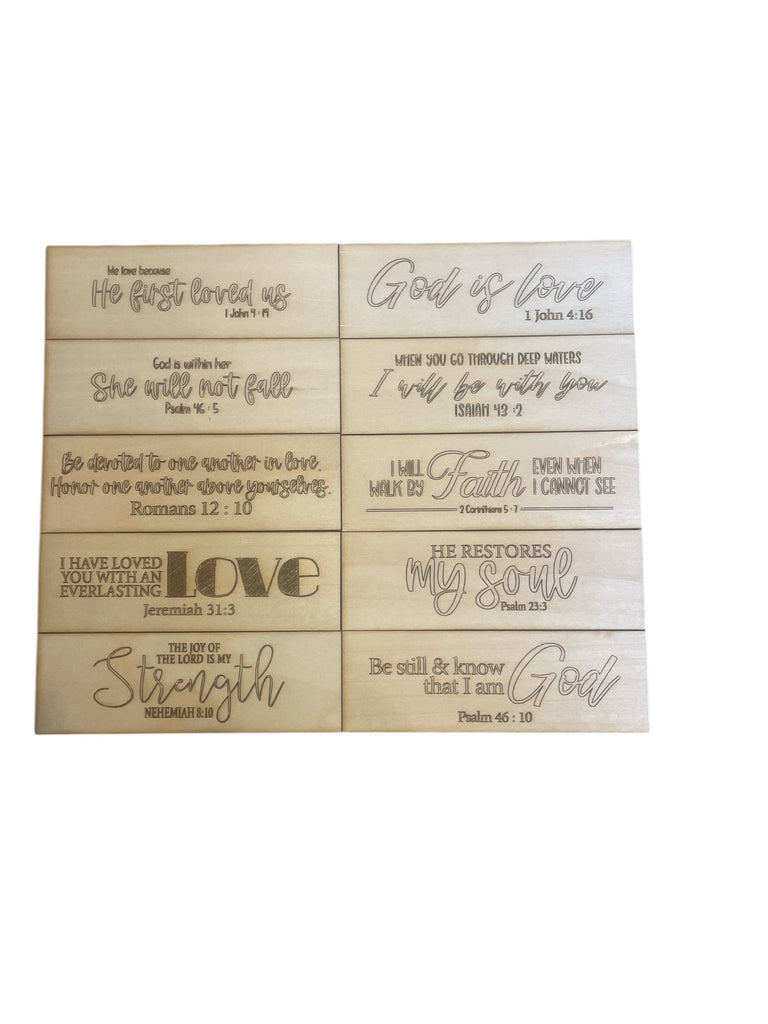 We love because
He first loved us
1 John 4 : 19
God is love
1 John 4:16
God is within her
She will not fall
Psalm 46 : 5
WHEN YOU GO THROUGH DEEP WATERS
I will be with you
ISAIAH 43 :2
Be devoted to one another in love.
Honor one another above yourselves.
Romans 12 : 10
I WILL
WALK BY
Faith
EVEN WHEN
I CANNOT SEE
2 Corinthians 5 : 7
I HAVE LOVED
YOU WITH AN
EVERLASTING
Love
Jeremiah 31:3
HE RESTORES
my soul
Psalm 23:3
THE JOY OF
THE LORD IS MY
Strength
NEHEMIAH 8:10
Be still & know
that I am
God
Psalm 46 : 10